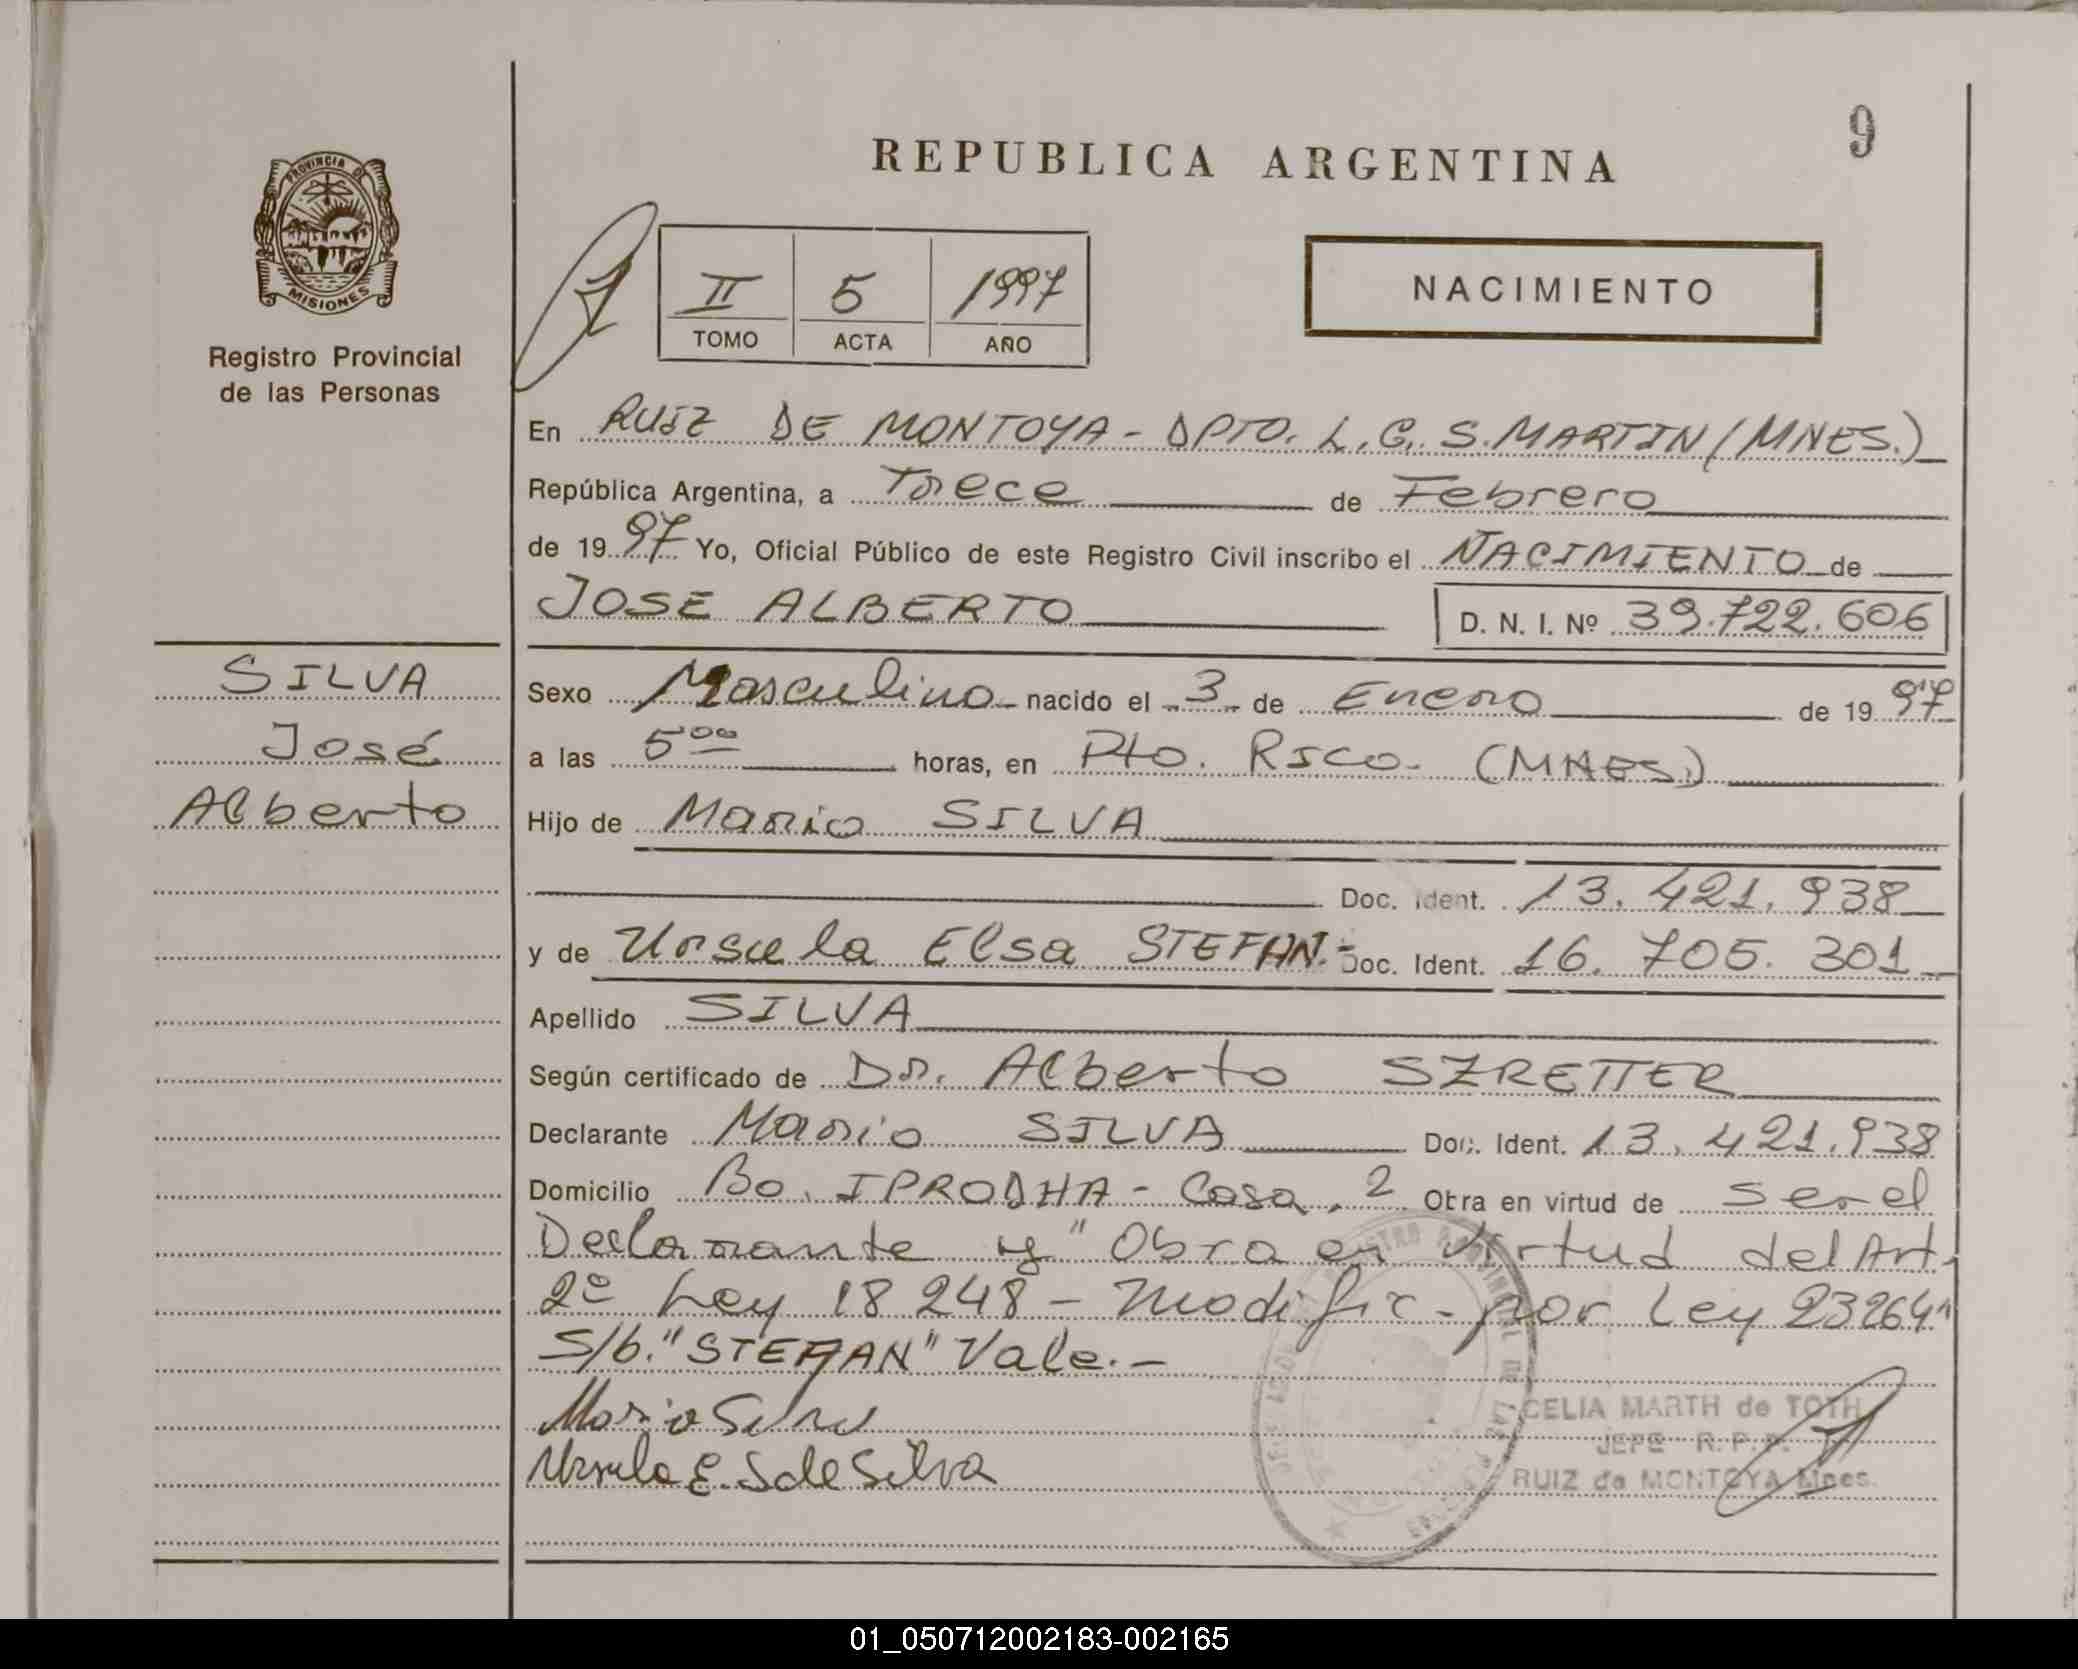 9
REPUBLICA ARGENTINA
PROVINCIA DE
MISIONES
Registro Provincial
de las Personas
II 5 1997
TOMO ACTA AÑO
NACIMIENTO
En RUIZ DE MONTOYA - DPTO. L. G. S. MARTIN (MNES.)
República Argentina, a Trece de Febrero
de 1997 Yo, Oficial Público de este Registro Civil inscribo el NACIMIENTO de
JOSE ALBERTO D. N. I. Nº 39.722.606
SILVA
José
Alberto
Sexo Masculino nacido el 3 de Enero de 1997
a las 5 00 horas, en Pto. Rico. (MNES.)
Hijo de Mario SILVA
Doc. Ident. 13.421.938
y de Ursula Elsa STEFAN.- Doc. Ident. 16.705.301
Apellido SILVA
Según certificado de Dr. Alberto SZRETTER
Declarante Mario SILVA Doc. Ident. 13.421.938
Domicilio Bo. IPRODHA - Casa. 2 Obra en virtud de ser el
Declarante y "Obra en virtud del Art.
2º Ley 18248 - Modific. por Ley 23264"
S/b. "STEFAN" Vale.-
Mario Silva
Ursula E. S de Silva
CELIA MARTH de TOTH
JEFE R. P. P.
RUIZ de MONTOYA Mnes.
01_050712002183-002165